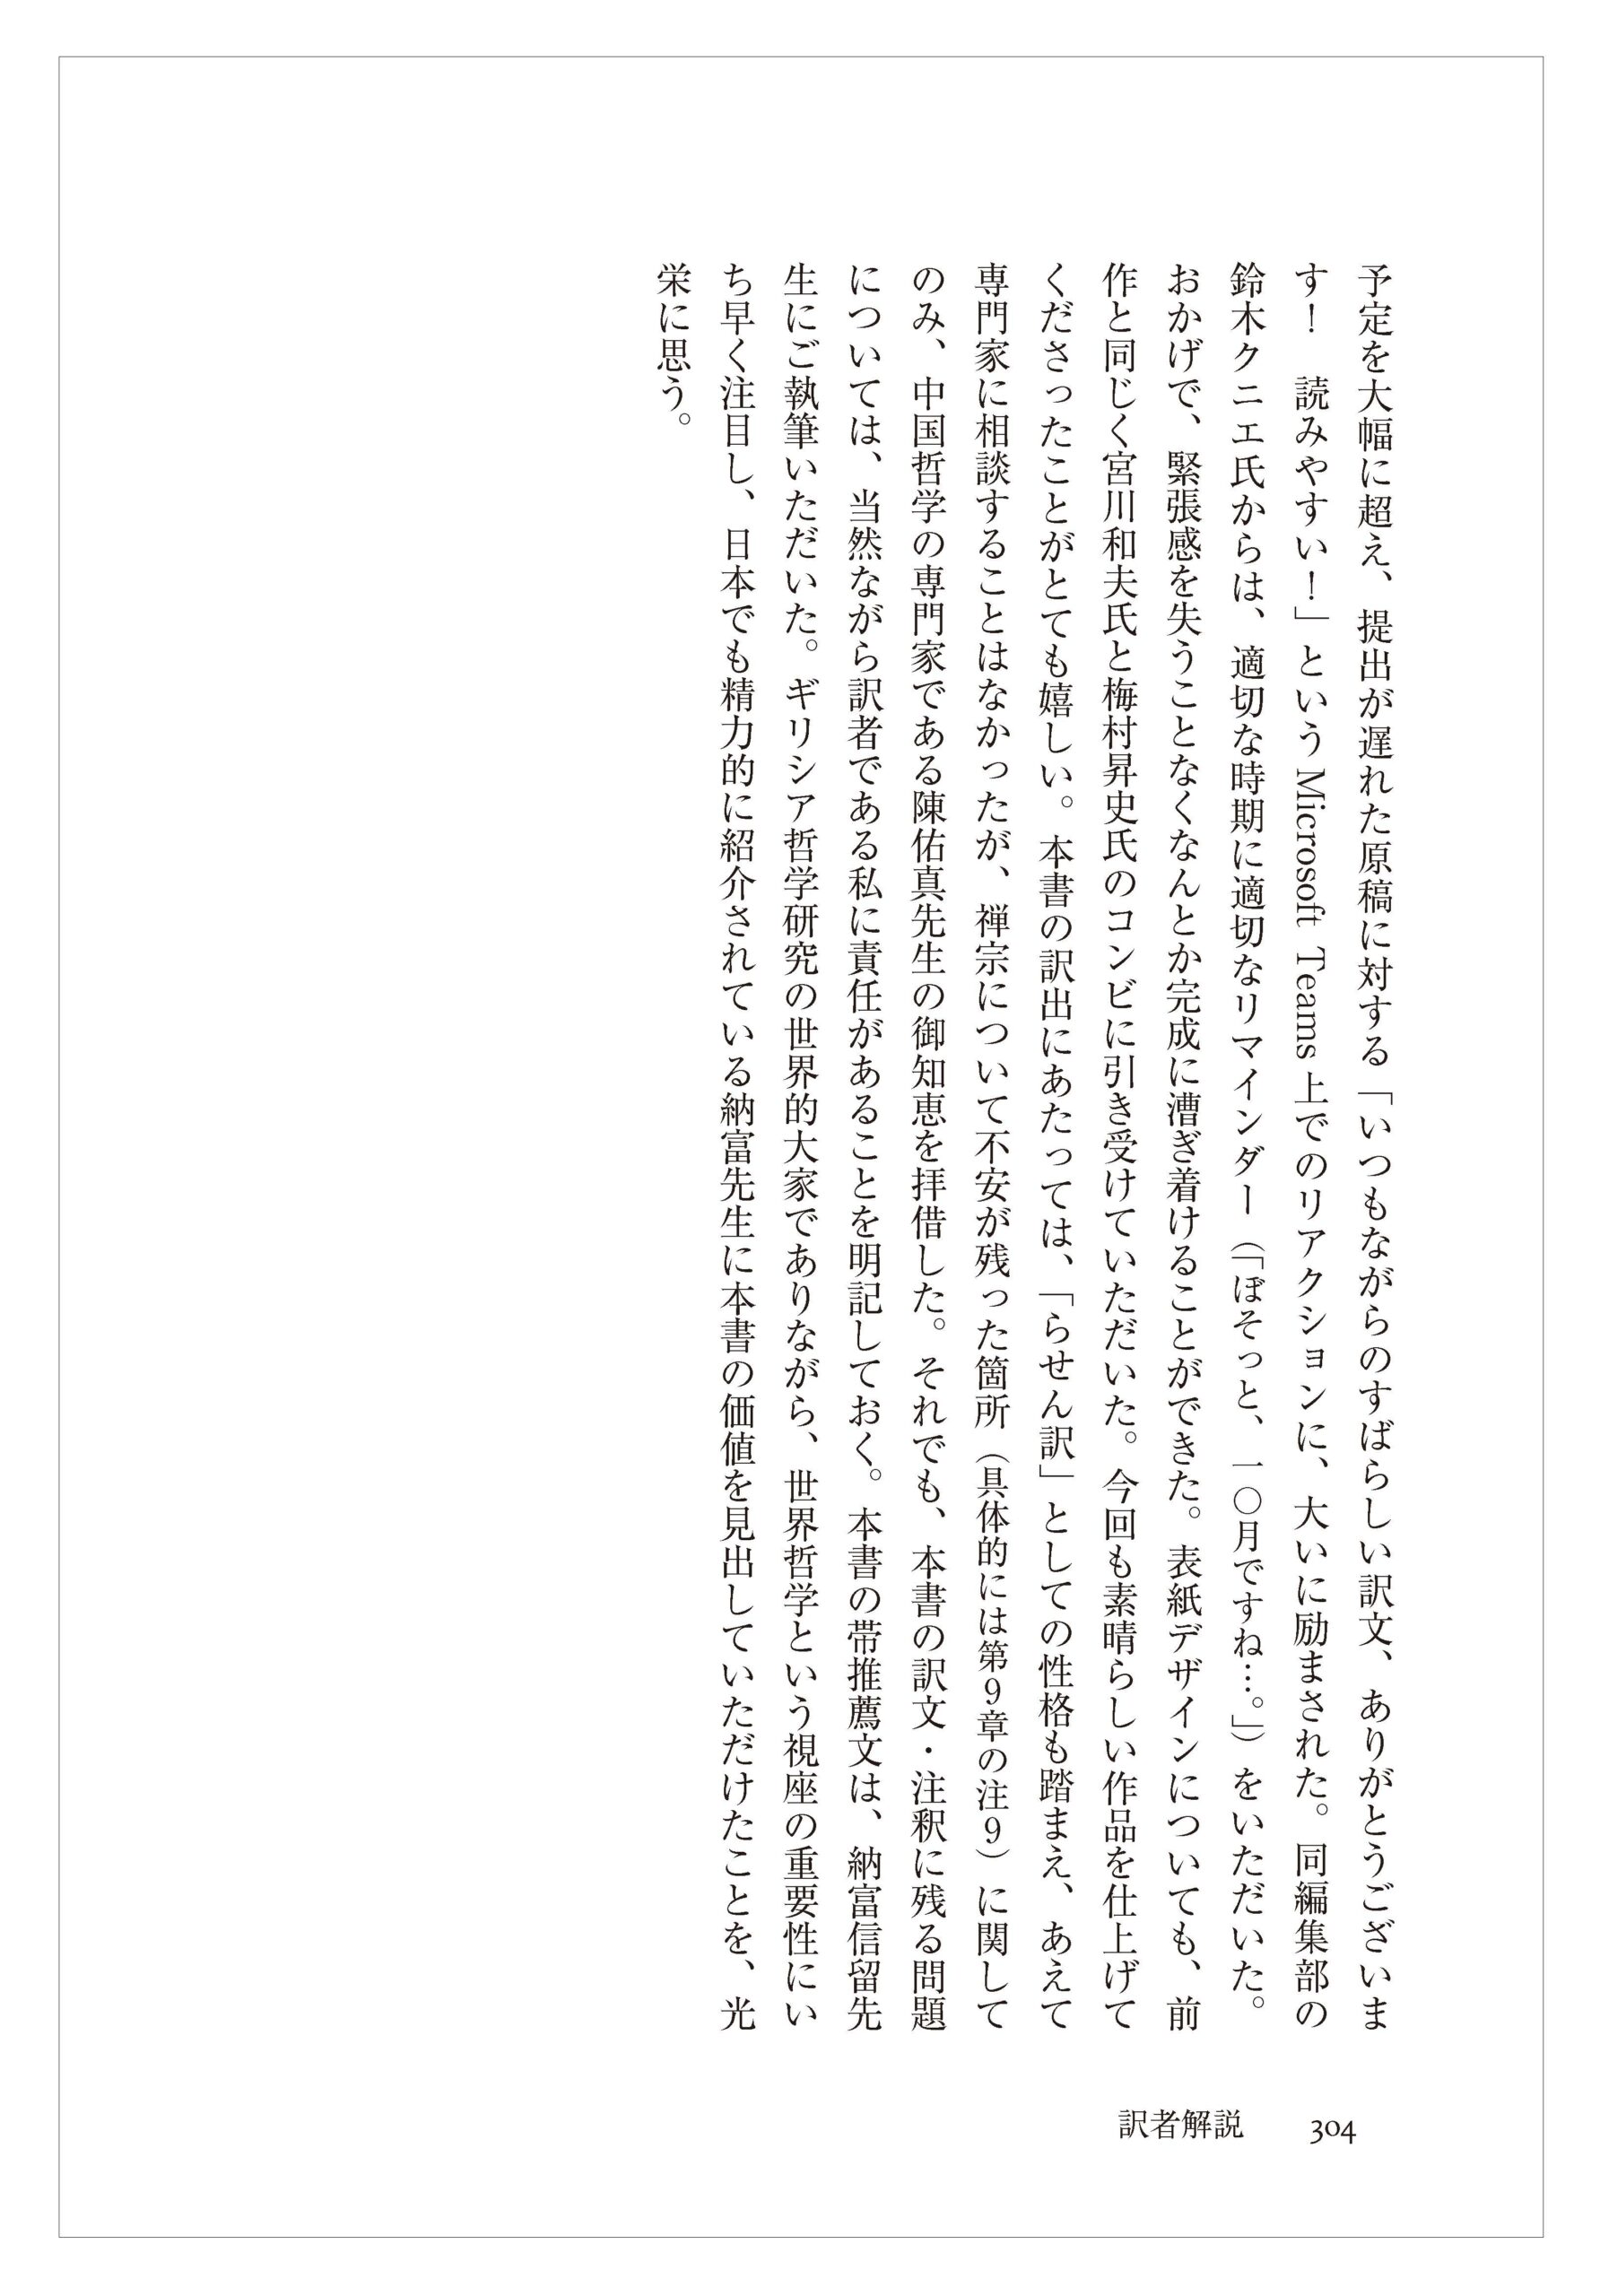 予定を大幅に超え、提出が遅れた原稿に対する「いつもながらのすばらしい訳文、ありがとうございま
す！　読みやすい！」という Microsoft Teams 上でのリアクションに、大いに励まされた。同編集部の
鈴木クニエ氏からは、適切な時期に適切なリマインダー（「ぼそっと、一〇月ですね…。」）をいただいた。
おかげで、緊張感を失うことなくなんとか完成に漕ぎ着けることができた。表紙デザインについても、前
作と同じく宮川和夫氏と梅村昇史氏のコンビに引き受けていただいた。今回も素晴らしい作品を仕上げて
くださったことがとても嬉しい。本書の訳出にあたっては、「らせん訳」としての性格も踏まえ、あえて
専門家に相談することはなかったが、禅宗について不安が残った箇所（具体的には第9章の注9）に関して
のみ、中国哲学の専門家である陳佑真先生の御知恵を拝借した。それでも、本書の訳文・注釈に残る問題
については、当然ながら訳者である私に責任があることを明記しておく。本書の帯推薦文は、納富信留先
生にご執筆いただいた。ギリシア哲学研究の世界的大家でありながら、世界哲学という視座の重要性にい
ち早く注目し、日本でも精力的に紹介されている納富先生に本書の価値を見出していただけたことを、光
栄に思う。
訳者解説　304